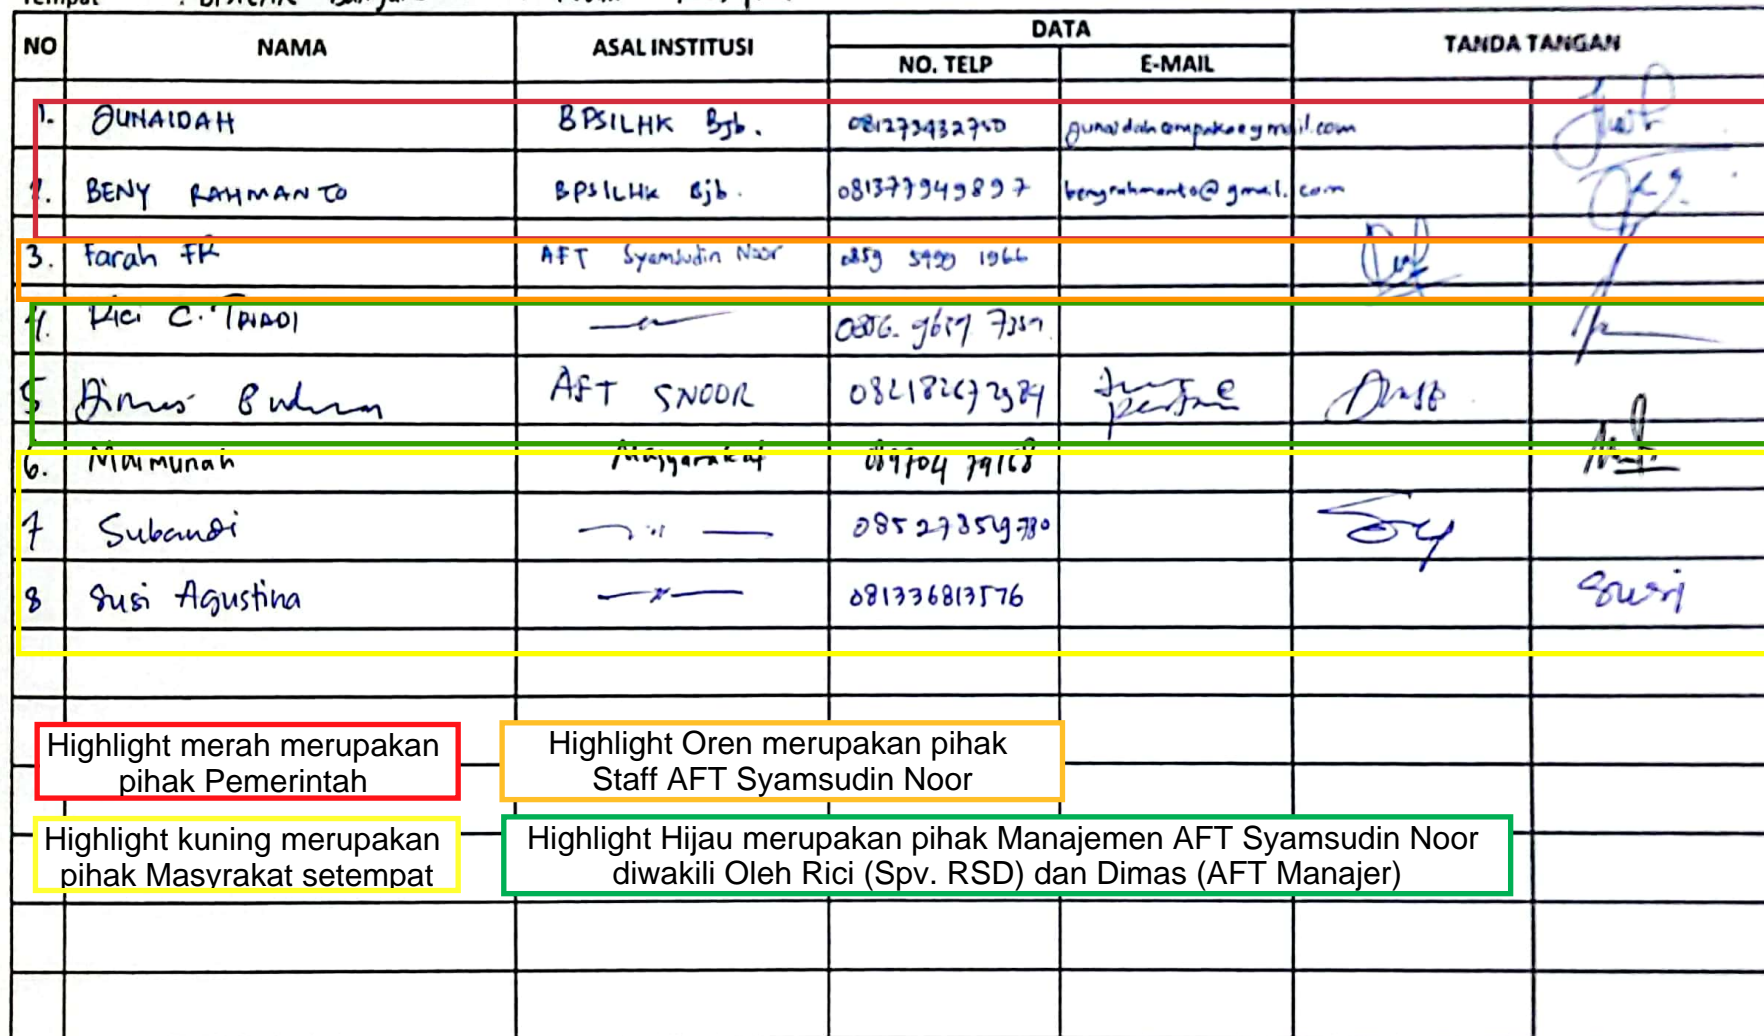 Tempat : BPSILHK
NO NAMA ASAL INSTITUSI DATA TANDA TANGAN
NO. TELP E-MAIL
1. JUNAIDAH BPSILHK Bjb. 081273432750 junaidahcempaka@gmail.com
2. BENY RAHMANTO BPSILHK Bjb. 081377949897 benyrahmanto@gmail.com
3. Farah FR AFT Syamsudin Noor 0859 5499 1966
4. Rici C. TRIADI
5 Dimas AFT SNOOR 082182672984
6. Maimunah Masyarakat
7 Subandi
8 Susi Agustina 081336813576 Susi
Highlight merah merupakan
pihak Pemerintah
Highlight Oren merupakan pihak
Staff AFT Syamsudin Noor
Highlight kuning merupakan
pihak Masyrakat setempat
Highlight Hijau merupakan pihak Manajemen AFT Syamsudin Noor
diwakili Oleh Rici (Spv. RSD) dan Dimas (AFT Manajer)